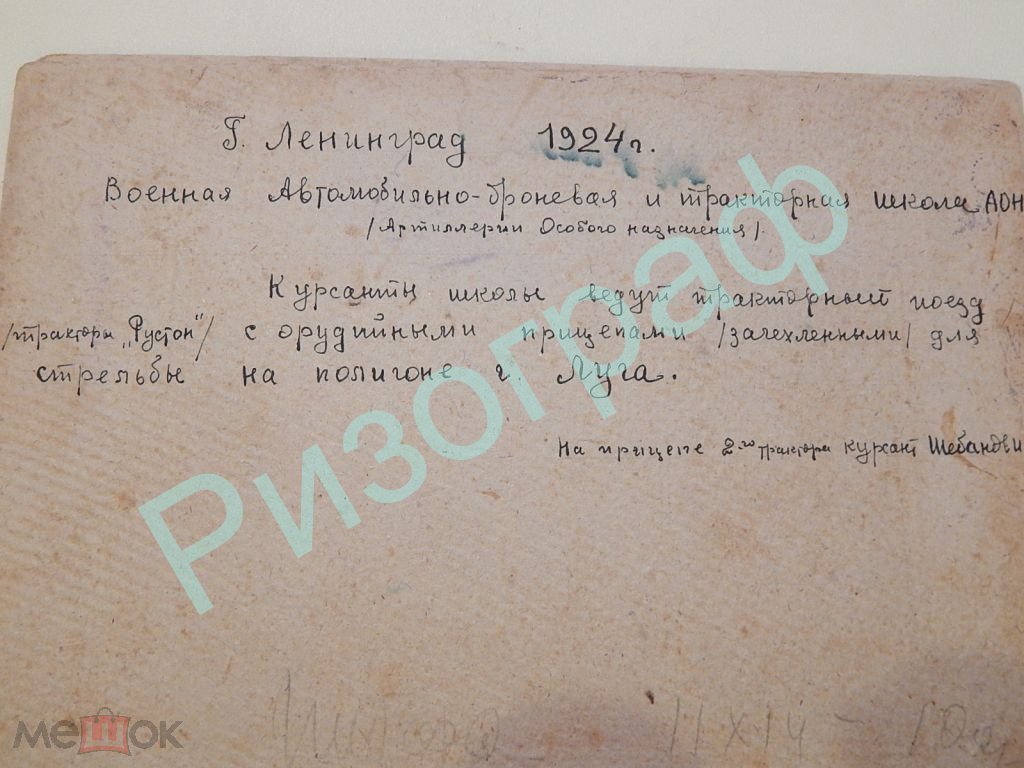 Г. Ленинград 1924 г.
Военная Автомобильно-броневая и тракторная школа АОН
/Артиллерии Особого назначения/.
Курсанты школы ведут тракторный поезд
/тракторы „Рустон"/ с орудийными прицепами /зачехленными/ для
стрельбы на полигоне г. Луга.
На прицепе 2-го трактора курсант
Ризограф
11 X 14 -
мешок